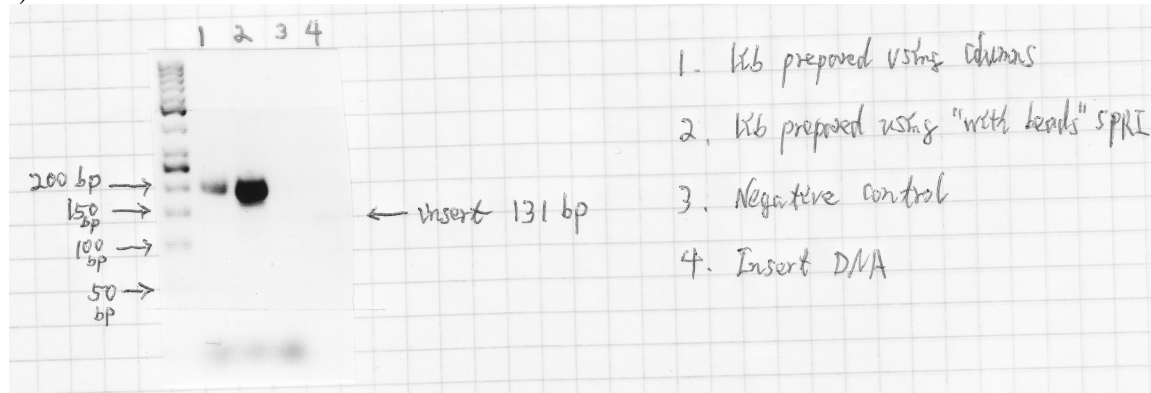 1 2 3 4
200 bp →
150 bp
100 bp →
50 bp →
← insert 131 bp
1. Lib prepared using columns
2. Lib prepared using "with beads" SPRI
3. Negative control
4. Insert DNA